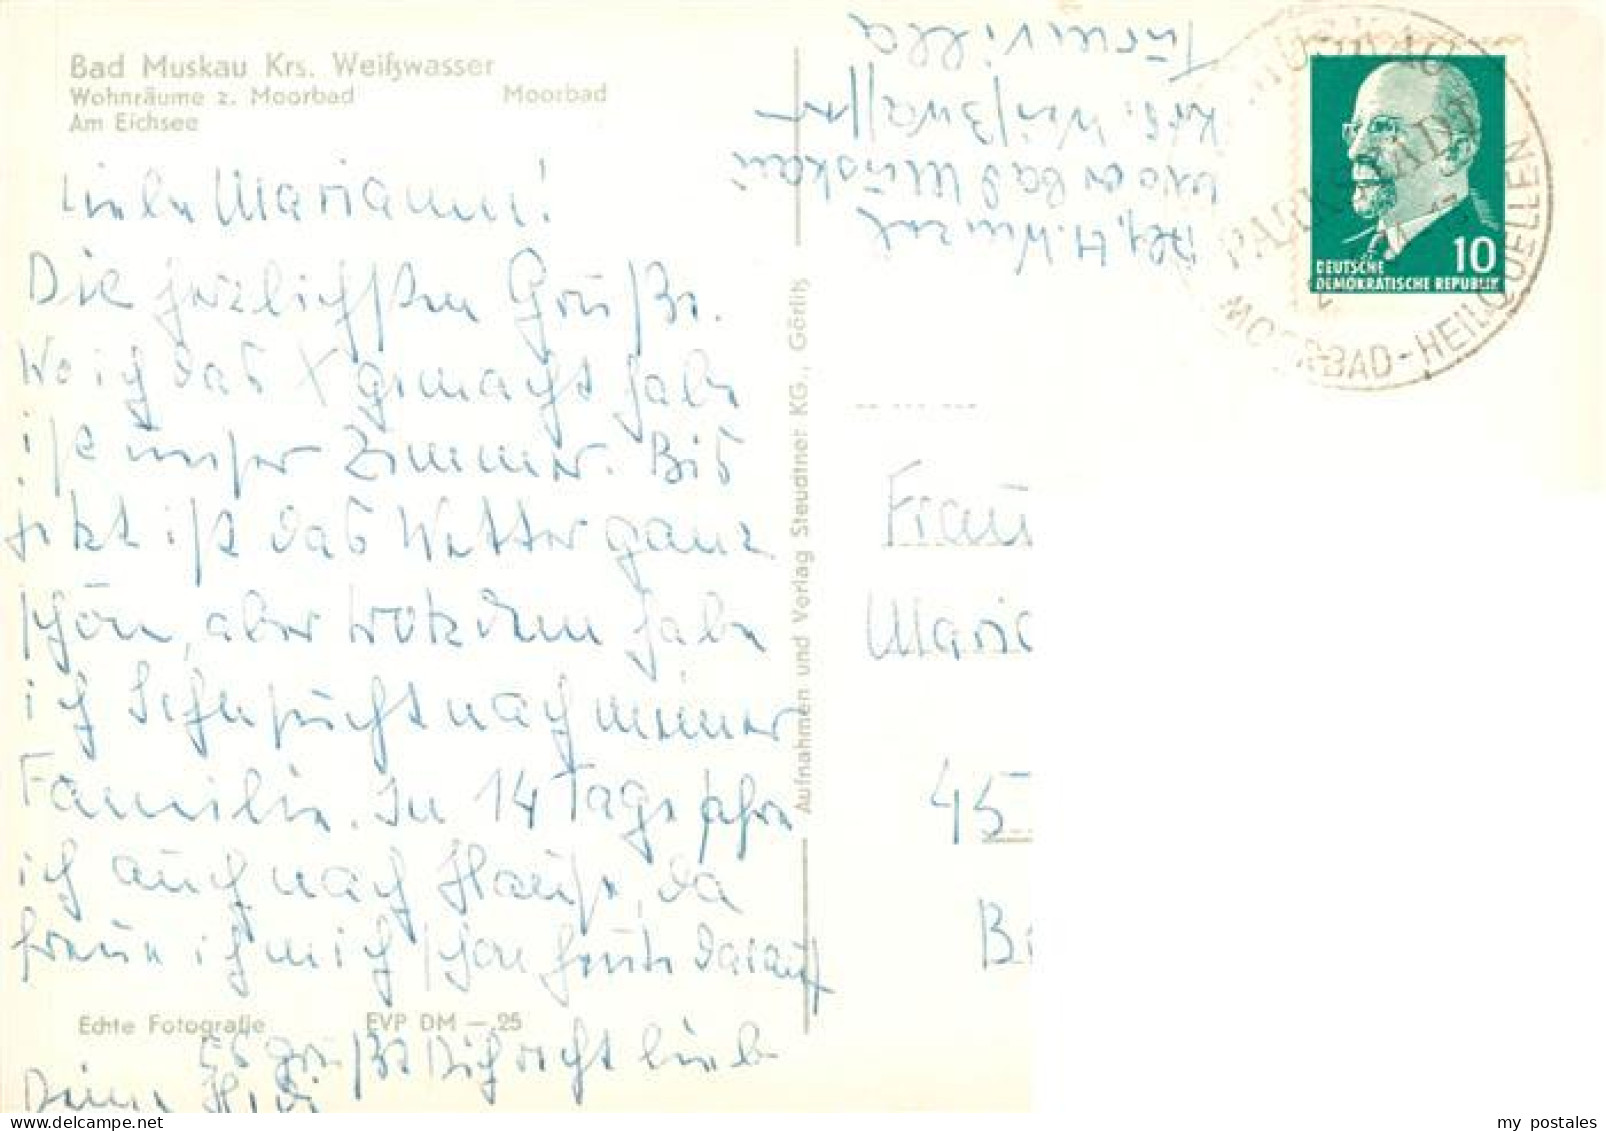 Bad Muskau Krs. Weißwasser
Wohnräume z. Moorbad Moorbad
Am Eichsee
Liebe Marianne!
Die herzlichsten Grüße.
Wo ich das X gemacht habe
ist unser Zimmer. Bis
jetzt ist das Wetter ganz
schön, aber trotzdem habe
ich Sehnsucht nach meiner
Familie. In 14 Tage fahre
ich auch nach Hause, da
freue ich mich schon heute darauf
Echte Fotografie EVP DM –.25
Es grüßt Dich recht lieb
Deine Heidi
Aufnahmen und Verlag Steudtner KG., Görlitz
H. Wenzel
Moorbad Muskau
Krs. Weißwasser
Turmvilla
MUSKAU
PARKSTADT
MOORBAD-HEILQUELLEN
10
DEUTSCHE
DEMOKRATISCHE REPUBLIK
Frau
Maria
45
B
my postales